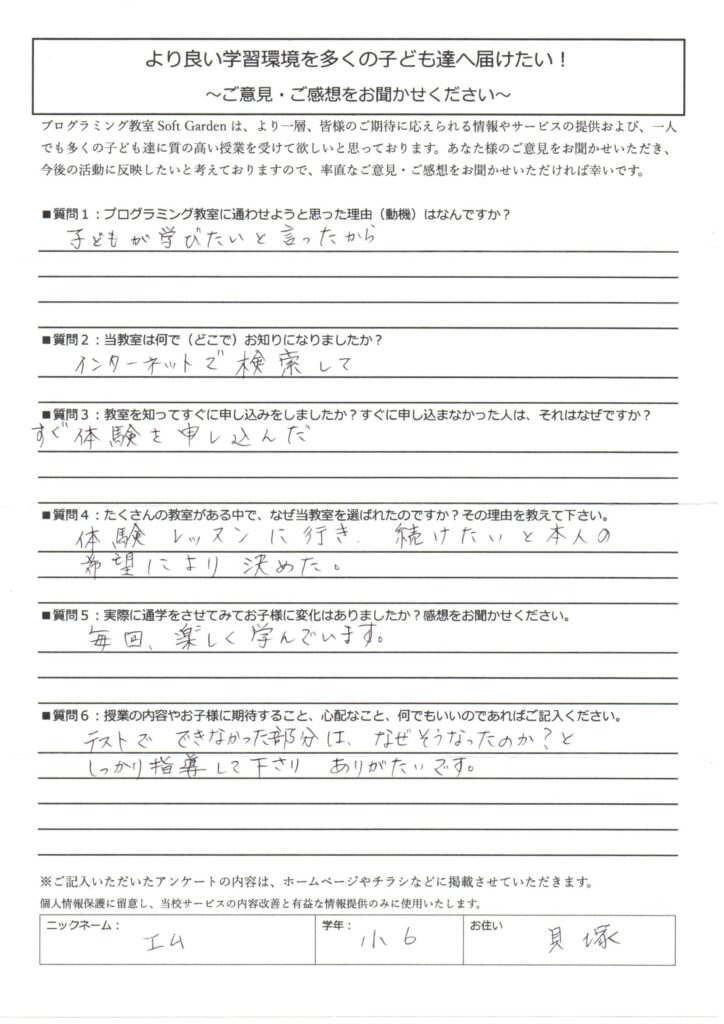 より良い学習環境を多くの子ども達へ届けたい！
～ご意見・ご感想をお聞かせください～
プログラミング教室 Soft Garden は、より一層、皆様のご期待に応えられる情報やサービスの提供および、一人
でも多くの子ども達に質の高い授業を受けて欲しいと思っております。あなた様のご意見をお聞かせいただき、
今後の活動に反映したいと考えておりますので、率直なご意見・ご感想をお聞かせいただければ幸いです。
■質問１：プログラミング教室に通わせようと思った理由（動機）はなんですか？
子どもが学びたいと言ったから
■質問２：当教室は何で（どこで）お知りになりましたか？
インターネットで検索して
■質問３：教室を知ってすぐに申し込みをしましたか？すぐに申し込まなかった人は、それはなぜですか？
すぐ体験を申し込んだ
■質問４：たくさんの教室がある中で、なぜ当教室を選ばれたのですか？その理由を教えて下さい。
体験レッスンに行き、続けたいと本人の
希望により決めた。
■質問５：実際に通学をさせてみてお子様に変化はありましたか？感想をお聞かせください。
毎回、楽しく学んでいます。
■質問６：授業の内容やお子様に期待すること、心配なこと、何でもいいのであればご記入ください。
テストでできなかった部分は、なぜそうなったのか？と
しっかり指導して下さりありがたいです。
※ご記入いただいたアンケートの内容は、ホームページやチラシなどに掲載させていただきます。
個人情報保護に留意し、当校サービスの内容改善と有益な情報提供のみに使用いたします。
ニックネーム： エム 学年： 小6 お住い 貝塚